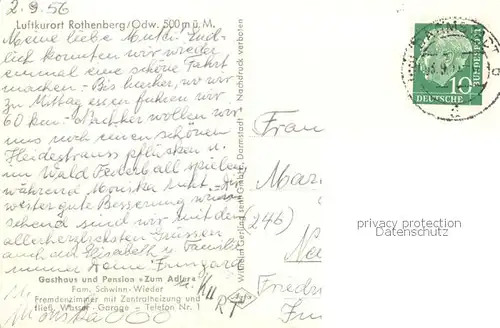 2.9.56
Luftkurort Rothenberg/Odw. 500 m ü. M.
Meine liebe Mutti! End-
lich konnten wir wieder
einmal eine schöne Fahrt
machen - Bis hierher, wo wir
zu Mittag essen fuhren wir
60 km - Nachher wollen wir
uns noch einen schönen
Heidestrauss pflücken u.
im Wald Federball spielen
während Monika ruht. - Dir
weiter gute Besserung wün-
schend sind wir mit den
allerherzlichsten Grüssen
auch an Elisabeth u. Familie
immer Deine Irmgard
Gasthaus und Pension »Zum Adler«
Fam. Schwinn-Wieder
Fremdenzimmer mit Zentralheizung und
fließ. Wasser - Garage - Telefon Nr. 1
Monika
Wilhelm Gerling sen. GmbH. Darmstadt
Nachdruck verboten
DARMSTADT
10
DEUTSCHE
BUNDESPOST
Frau
(246)
privacy protection
watermark